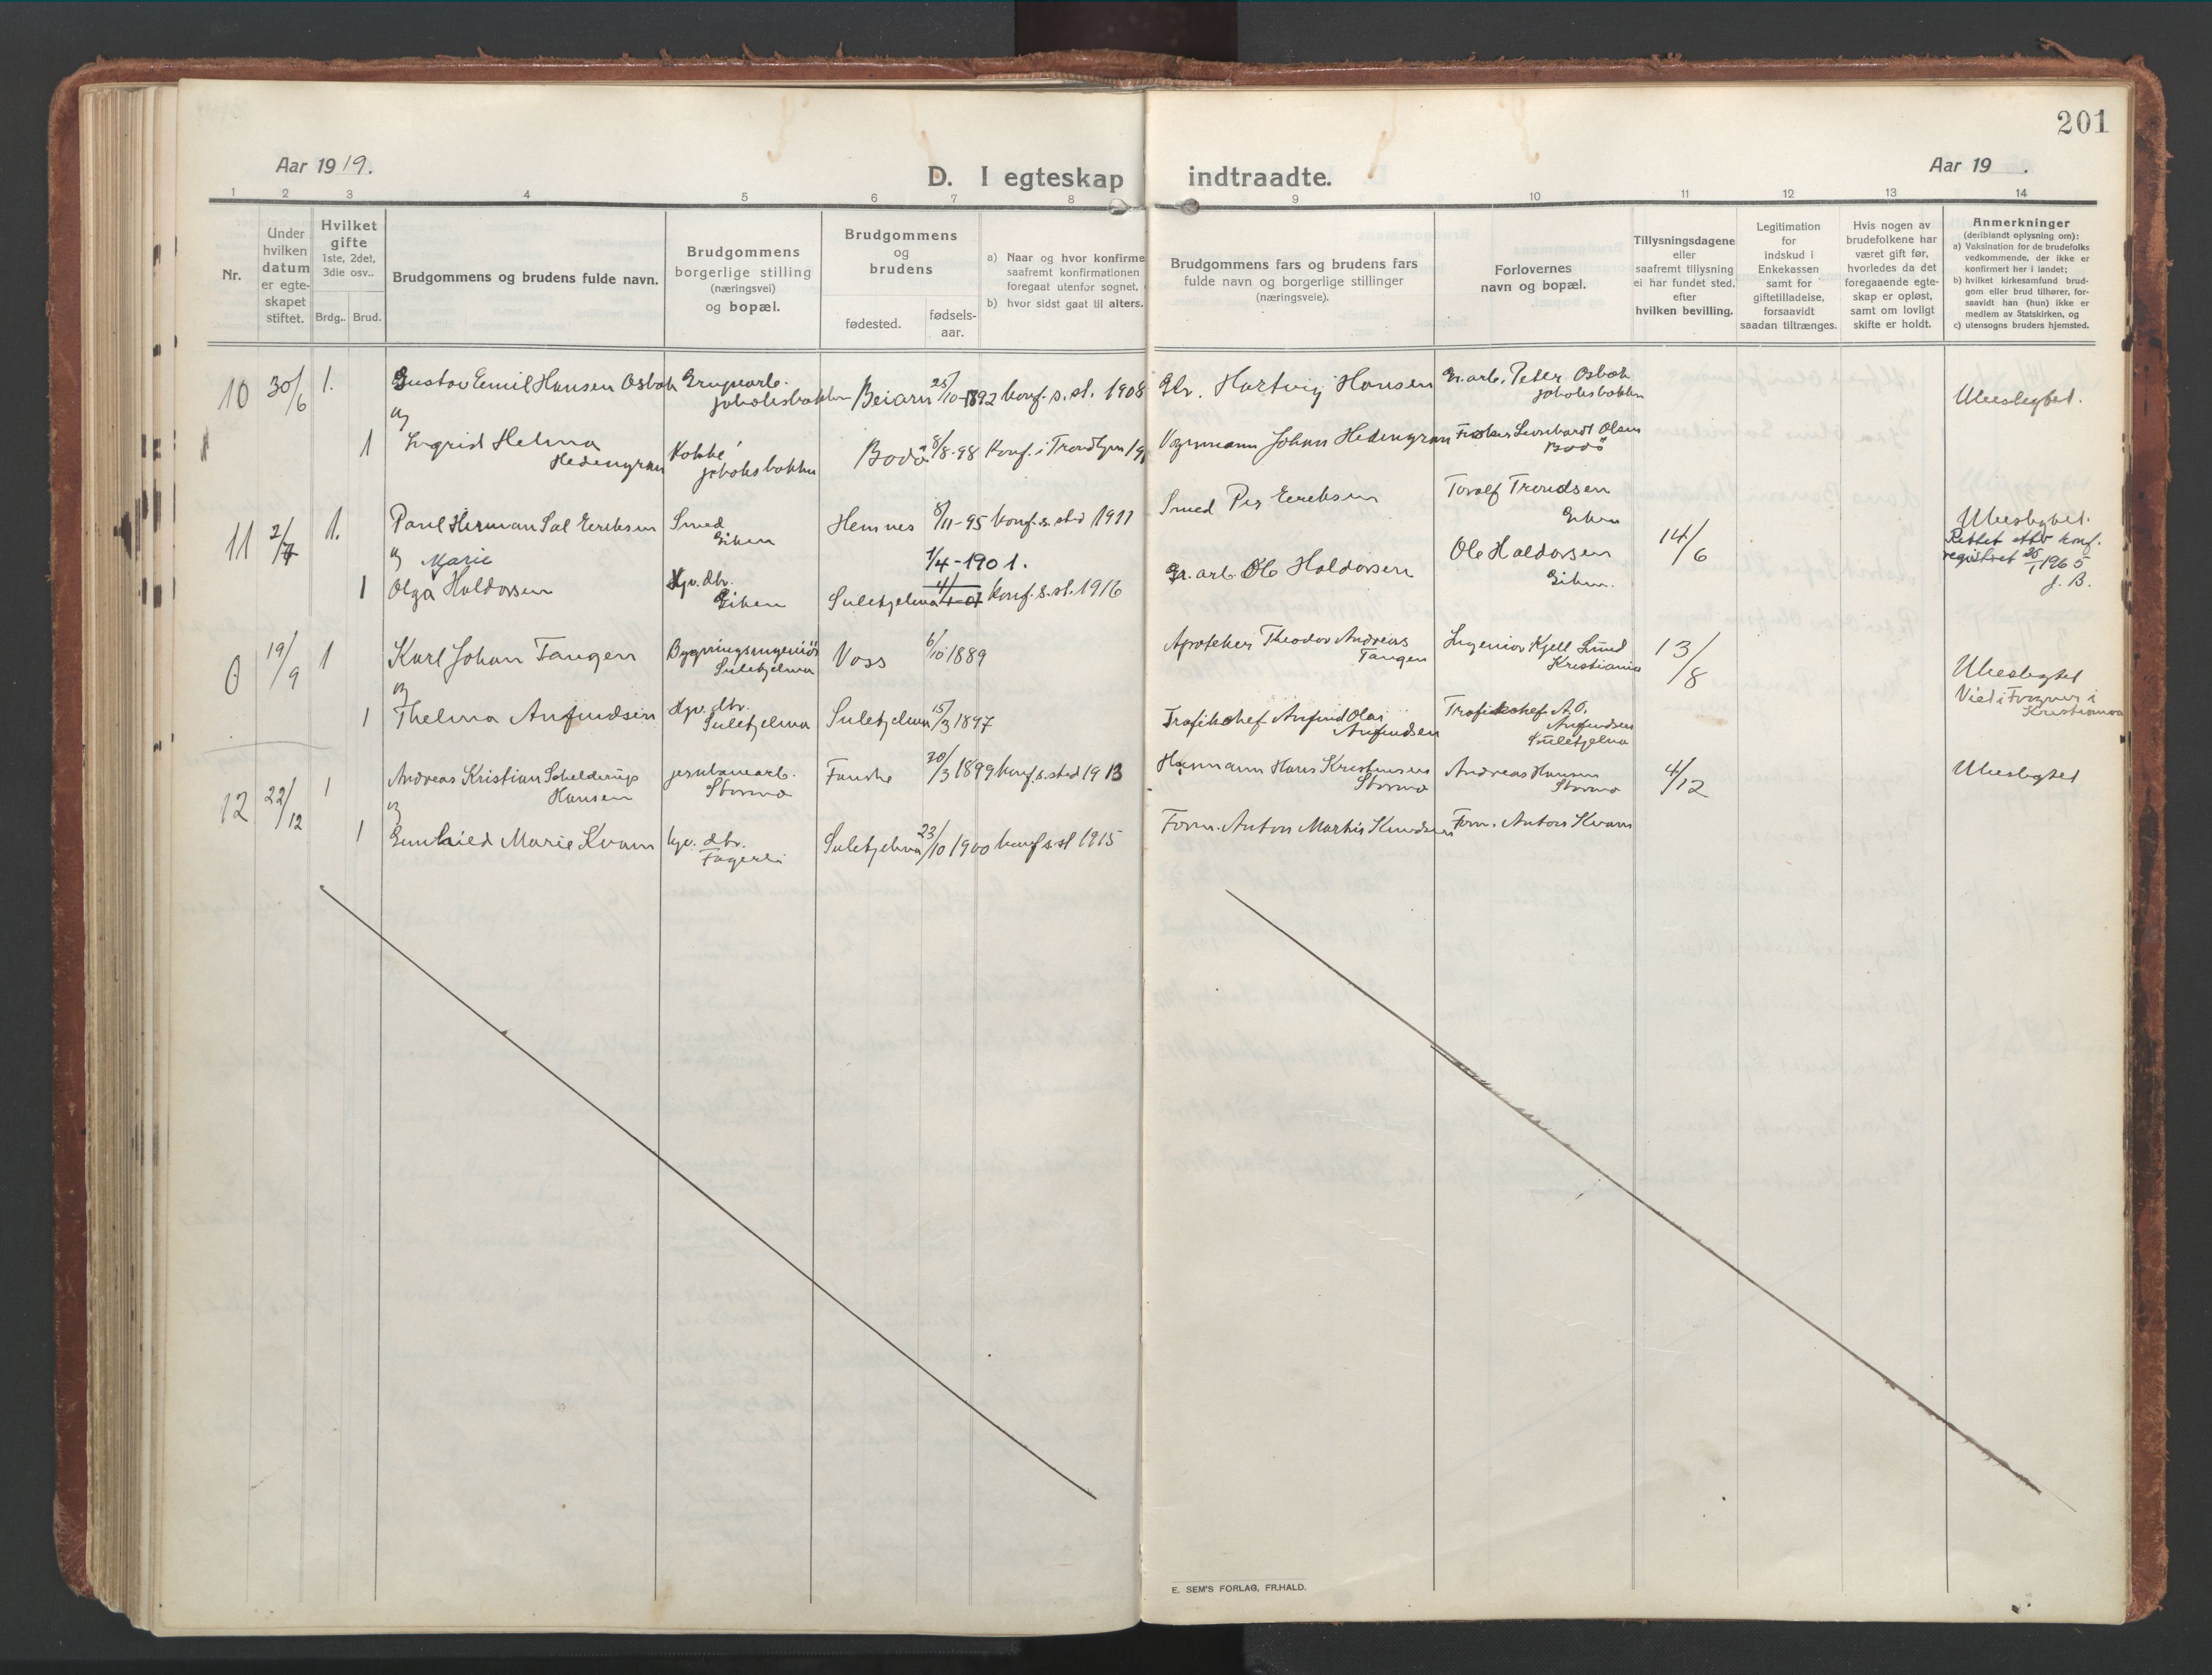 201
Aar 1919.
D. I egteskap indtraadte.
Aar 19 .
1 2 3 4 5 6 7 8 9 10 11 12 13 14
Nr.
Under
hvilken
datum
er egte-
skapet
stiftet.
Hvilket
gifte
1ste, 2det,
3die osv..
Brdg.. Brud.
Brudgommens og brudens fulde navn.
Brudgommens
borgerlige stilling
(næringsvei)
og bopæl.
Brudgommens
og
brudens
fødested.
fødsels-
aar.
a) Naar og hvor konfirme
saafremt konfirmationen
foregaat utenfor sognet,
b) hvor sidst gaat til alters.
Brudgommens fars og brudens fars
fulde navn og borgerlige stillinger
(næringsveie).
Forlovernes
navn og bopæl.
Tillysningsdagene
eller
saafremt tillysning
ei har fundet sted,
efter
hvilken bevilling.
Legitimation
for
Indskud i
Enkekassen
samt for
giftetilladelse,
forsaavidt
saadan tiltrænges.
Hvis nogen av
brudefolkene har
været gift før,
hvorledes da det
foregaaende egte-
skap er opløst,
samt om lovligt
skifte er holdt.
Anmerkninger
(deriblandt oplysning om):
a) Vaksination for de brudefolks
vedkommende, der ikke er
konfirmert her i landet;
b) hvilket kirkesamfund brud-
gom eller brud tilhører, for-
saavidt han (hun) ikke er
medlem av Statskirken, og
c) utensogns bruders hjemsted.
10 30/6 1. Gustav Emil Hansen Osbak Grupearb. Beiarn 25/10-1892 konf. s. st. 1908 Hartvig Hansen Gr. arb. Peter Osbak Ubeslegtet.
jakobsbakken jakobsbakken
og
1 Ingrid Helma Kokke Bodø 8/8-98 Konf. i Trondhjem 19 Vognmann Johan Hedengran Fisker Leonhardt Olsen
Hedengran jakobsbakken Bodø
11 2/7 1. Paul Herman Sal Eeriksen Smed Hemnes 8/11-95 konf. s. sted 1911 Smed Per Eeriksen Toralf Trondsen 14/6 Ubeslegtet.
Eiken Eiken
og Marie 1/4-1901. Rettet etter konf.
registret 25/1 1965
J. B.
1 Olga Haldorsen Hjv. dtr. Sulitjelma Konf. s. st. 1916 Gr. arb. Ole Haldorsen Ole Haldorsen
Eiken Eiken.
0 19/9 1 Karl Johan Tangen Bygningsingeniør Voss 6/10 1889 Apotheker Theodor Andreas Ingeniør Kjell Lund 13/8 Ubeslegtet
Sulitjelma Tangen Kristiania
og Viet i Frogner i
Kristiania
1 Thelma Anfindsen Hjv. dtr. Sulitjelma 15/3 1897 Trafikchef Anfind Olai Trafikchef A. O.
Sulitjelma Anfindsen Anfindsen
Sulitjelma
12 22/12 1 Andreas Kristian Schelderup jernbanearb. Fauske 20/3 1899 konf. s. sted 1913 Hans Kristensen Andreas Hansen 4/12 Ubeslegtet
Hansen Stormo Stormo Stormo
og
1 Marie Kvam hjv. dtr. Sulitjelma 23/10 1900 konf s. st 1915 Form. Anton Martin Knudsen Form. Anton Kvam
Fagerli
E. SEM'S FORLAG, FR.HALD.